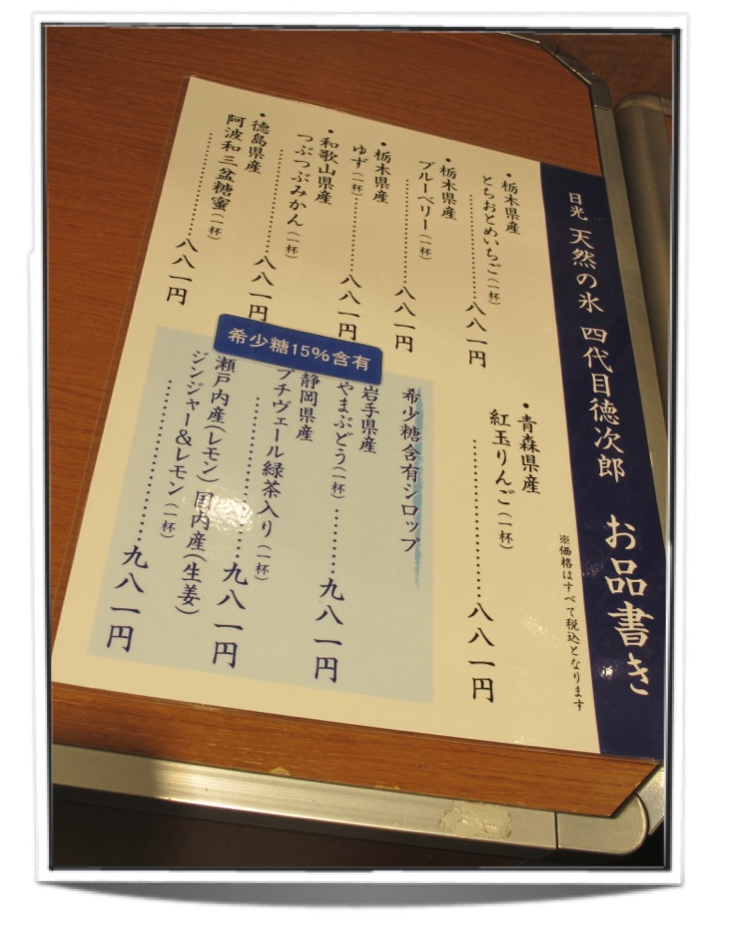 日光 天然の氷 四代目徳次郎 お品書き
※価格はすべて税込となります
・栃木県産
とちおとめいちご(一杯)……八八一円
・栃木県産
ブルーベリー(一杯)……八八一円
・栃木県産
ゆず(一杯)……八八一円
・和歌山県産
つぶつぶみかん(一杯)……八八一円
・徳島県産
阿波和三盆糖蜜(一杯)……八八一円
・青森県産
紅玉りんご(一杯)……八八一円
希少糖15%含有
希少糖含有シロップ
岩手県産
やまぶどう(一杯)……九八一円
静岡県産
プチヴェール緑茶入り(一杯)……九八一円
瀬戸内産(レモン)国内産(生姜)
ジンジャー&レモン(一杯)……九八一円